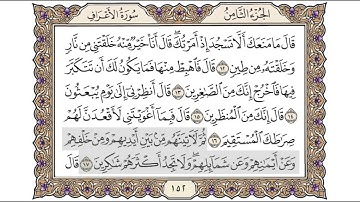 سُورَةُ الأَعْرَافِ
الجُزْءُ الثَّامِنُ
قَالَ مَا مَنَعَكَ أَلَّا تَسْجُدَ إِذْ أَمَرْتُكَ ۖ قَالَ أَنَا۠ خَيْرٌ مِّنْهُ خَلَقْتَنِى مِن نَّارٍ
وَخَلَقْتَهُۥ مِن طِينٍ ١٢ قَالَ فَٱهْبِطْ مِنْهَا فَمَا يَكُونُ لَكَ أَن تَتَكَبَّرَ
فِيهَا فَٱخْرُجْ إِنَّكَ مِنَ ٱلصَّٰغِرِينَ ١٣ قَالَ أَنظِرْنِىٓ إِلَىٰ يَوْمِ يُبْعَثُونَ
١٤ قَالَ إِنَّكَ مِنَ ٱلْمُنظَرِينَ ١٥ قَالَ فَبِمَآ أَغْوَيْتَنِى لَأَقْعُدَنَّ لَهُمْ
صِرَٰطَكَ ٱلْمُسْتَقِيمَ ١٦ ثُمَّ لَـَٔاتِيَنَّهُم مِّنۢ بَيْنِ أَيْدِيهِمْ وَمِنْ خَلْفِهِمْ
وَعَنْ أَيْمَٰنِهِمْ وَعَن شَمَآئِلِهِمْ ۖ وَلَا تَجِدُ أَكْثَرَهُمْ شَٰكِرِينَ ١٧ قَالَ
١٥٢